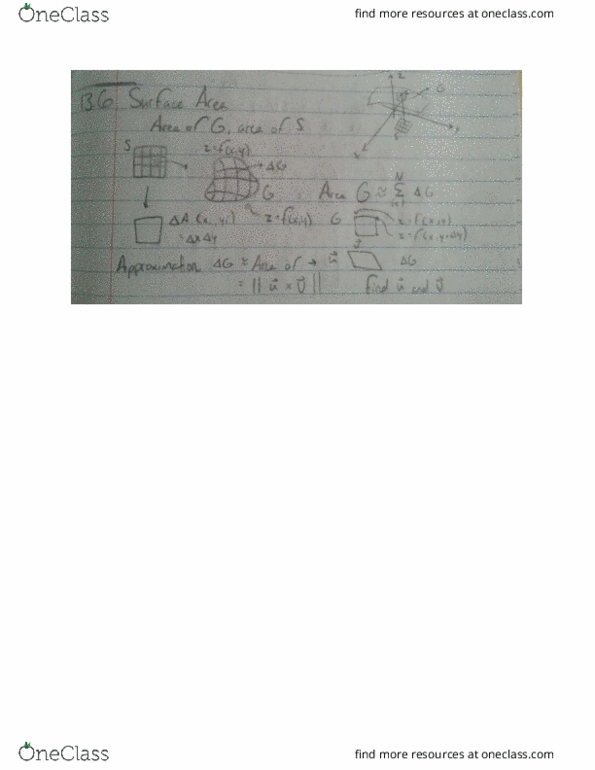 OneClass
find more resources at oneclass.com
13.6 Surface Area
Area of G, area of S
z
G
y
x
S
z=f(x,y)
ΔG
G
Area G ≈ Σ ΔG
N
i=1
z=f(x,y)
G
z=f(x,y)
z=f(x,y+Δy)
ΔA (xᵢ, yᵢ)
= ΔxΔy
Approximation ΔG ≈ Area of → u⃗
ΔG
= || u⃗ × v⃗ ||
find u⃗ and v⃗
OneClass
find more resources at oneclass.com